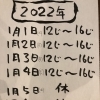 2022年
1月1日 12じ〜16じ
1月2日 12じ〜16じ
1月3日 12じ〜16じ
1月4日 12じ〜16じ
1月5日 休